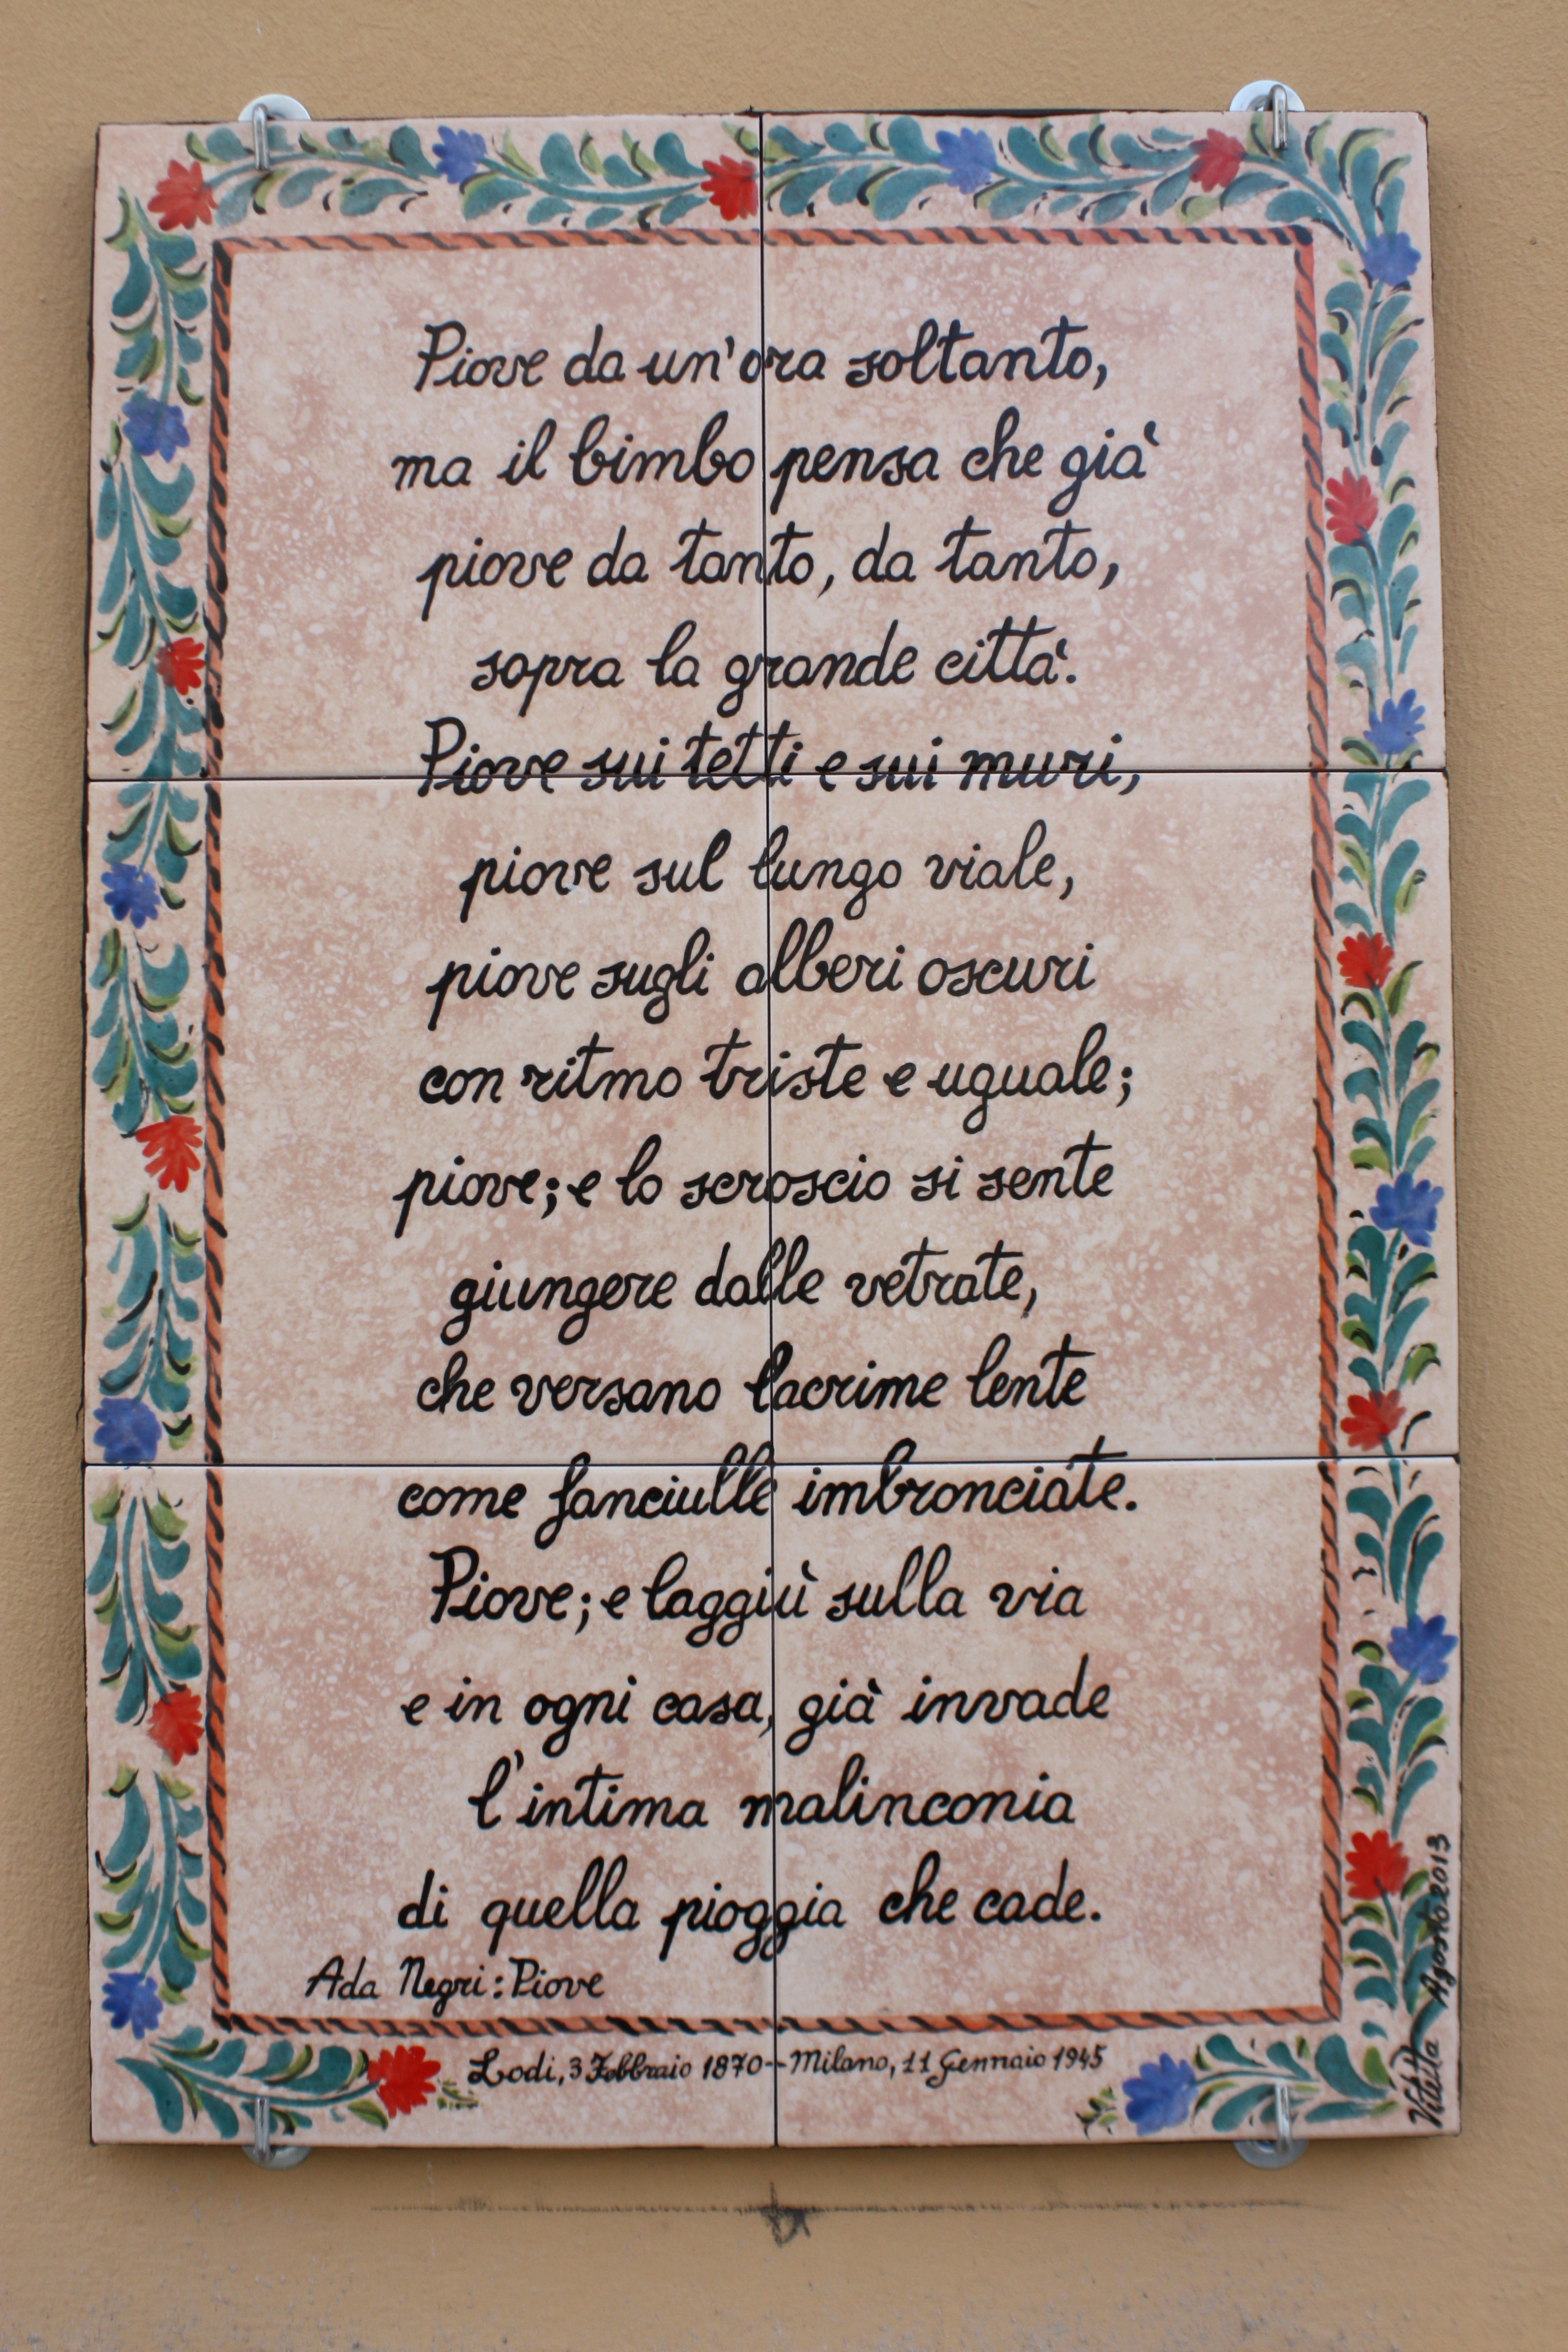 Piove da un'ora soltanto,
ma il bimbo pensa che già
piove da tanto, da tanto,
sopra la grande città.
Piove sui tetti e sui muri,
piove sul lungo viale,
piove sugli alberi oscuri
con ritmo triste e uguale;
piove; e lo scroscio si sente
giungere dalle vetrate,
che versano lacrime lente
come fanciulle imbronciate.
Piove; e laggiù sulla via
e in ogni casa, già invade
l'intima malinconia
di quella pioggia che cade.
Ada Negri: Piove
Lodi, 3 Febbraio 1870 - Milano, 11 Gennaio 1945
Vitetta Agosto 2013